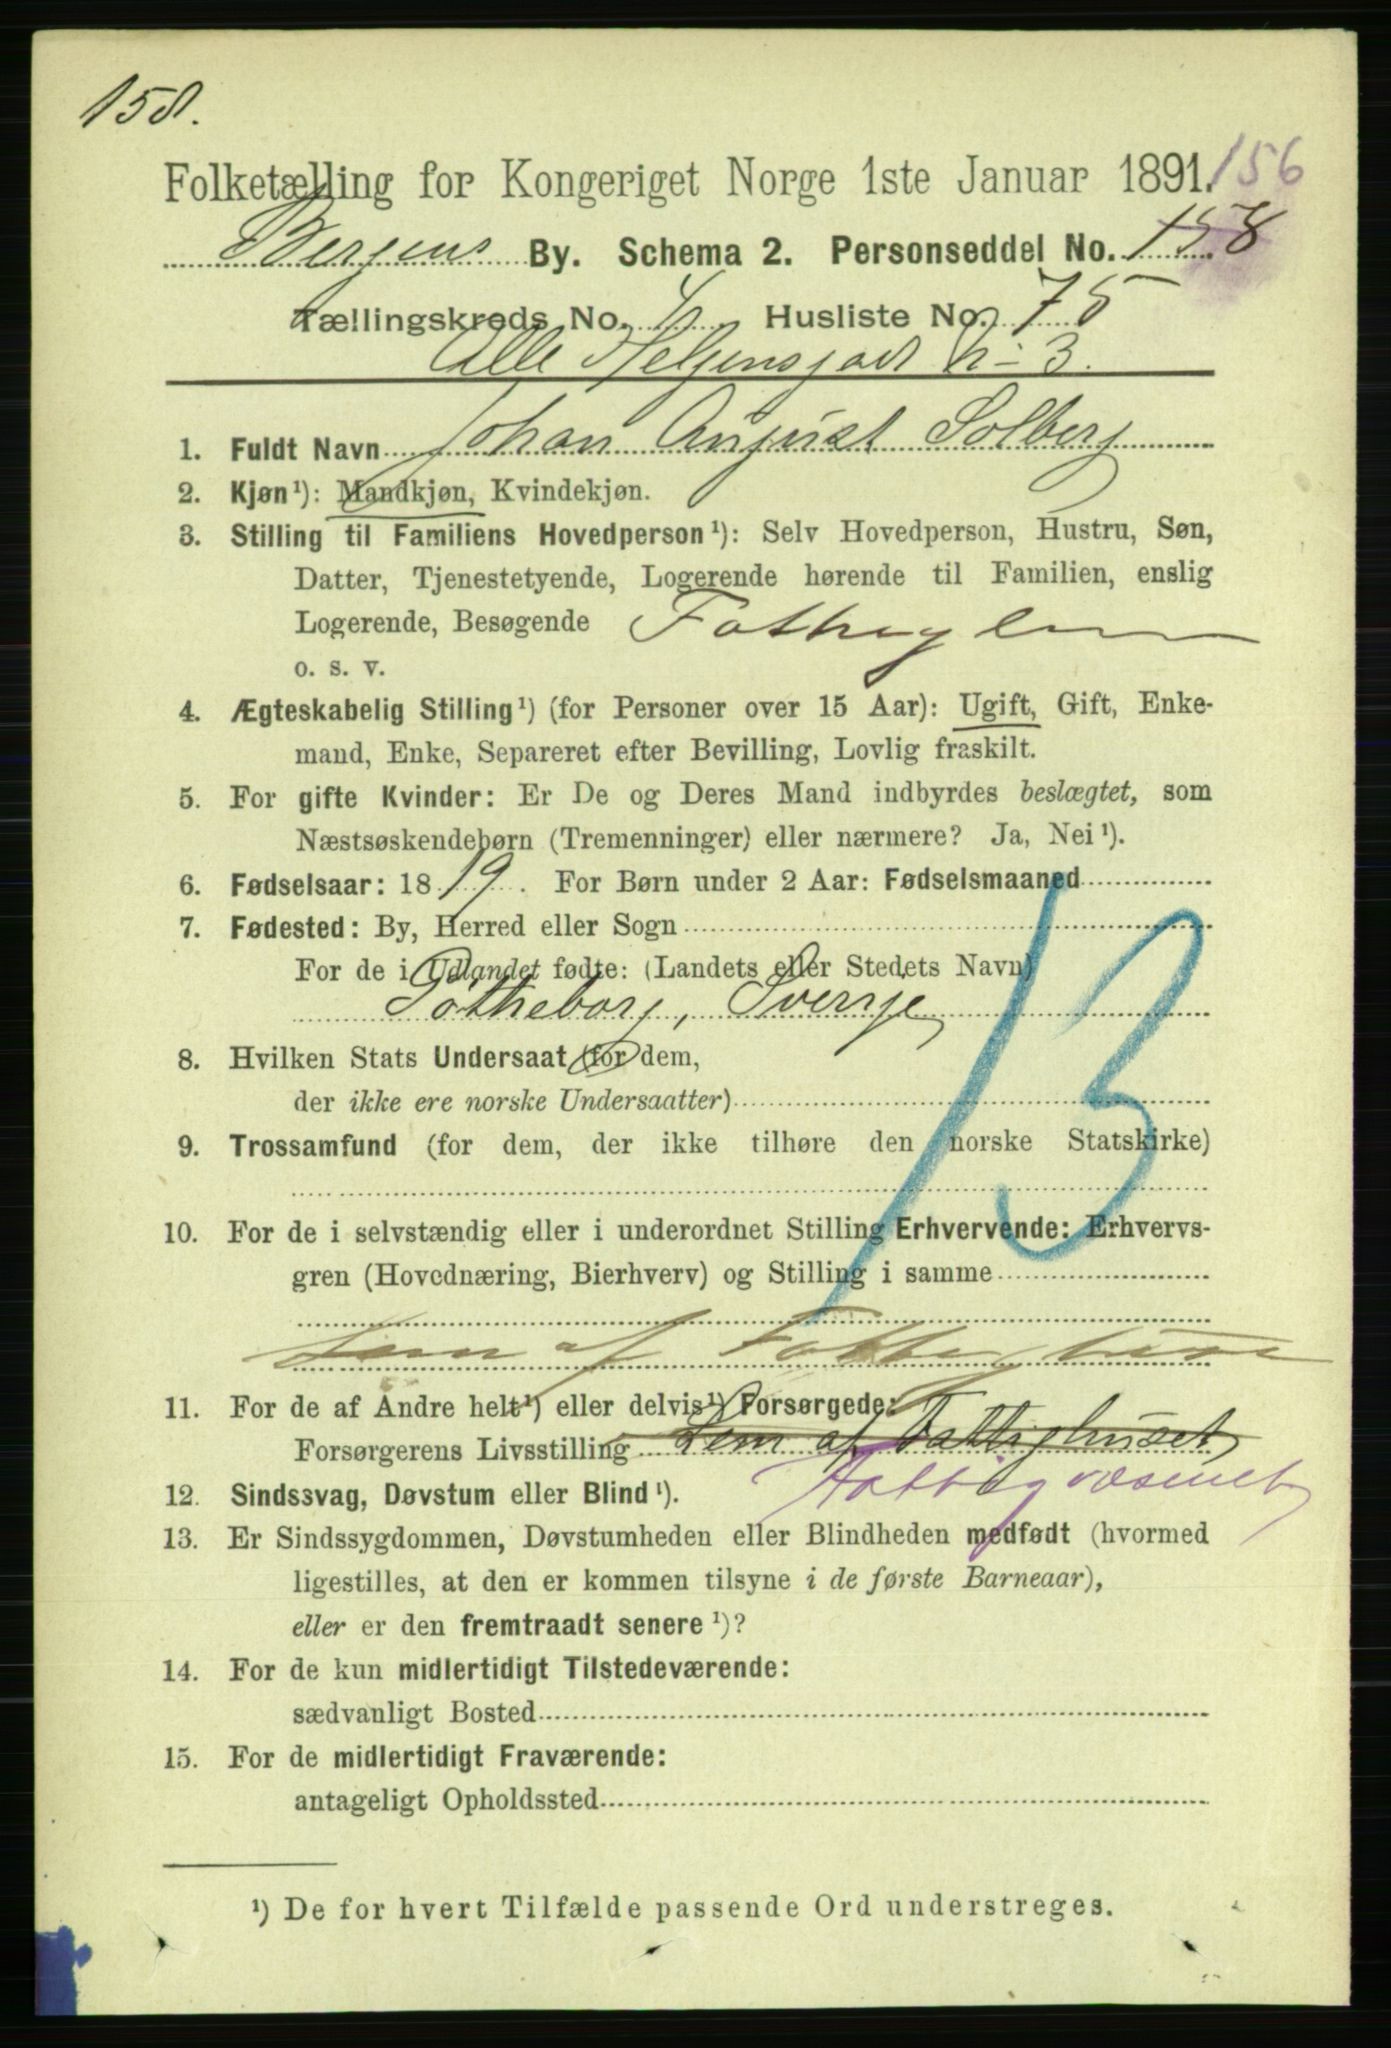 158.
Folketælling for Kongeriget Norge 1ste Januar 1891. 156
Bergens By. Schema 2. Personseddel No. 158
Tællingskreds No. 4 Husliste No. 75
Alle Helgensgad N- 3.
1. Fuldt Navn Johan August Solberg
2. Kjøn¹): Mandkjøn, Kvindekjøn.
3. Stilling til Familiens Hovedperson¹): Selv Hovedperson, Hustru, Søn,
Datter, Tjenestetyende, Logerende hørende til Familien, enslig
Logerende, Besøgende Fattiglem
o. s. v.
4. Ægteskabelig Stilling¹) (for Personer over 15 Aar): Ugift, Gift, Enke-
mand, Enke, Separeret efter Bevilling, Lovlig fraskilt.
5. For gifte Kvinder: Er De og Deres Mand indbyrdes beslægtet, som
Næstsøskendebørn (Tremenninger) eller nærmere? Ja, Nei¹).
6. Fødselsaar: 1819. For Børn under 2 Aar: Fødselsmaaned
7. Fødested: By, Herred eller Sogn
For de i Udlandet fødte: (Landets eller Stedets Navn)
Gøtheborg, Sverrje
8. Hvilken Stats Undersaat (for dem,
der ikke ere norske Undersaatter)
13
9. Trossamfund (for dem, der ikke tilhøre den norske Statskirke)
10. For de i selvstændig eller i underordnet Stilling Erhvervende: Erhvervs-
gren (Hovednæring, Bierhverv) og Stilling i samme
Lem af
11. For de af Andre helt¹) eller delvis¹) Forsørgede:
Forsørgerens Livsstilling Lem af Fattighuset
Fattigvæsenet
12. Sindssvag, Døvstum eller Blind¹).
13. Er Sindssygdommen, Døvstumheden eller Blindheden medfødt (hvormed
ligestilles, at den er kommen tilsyne i de første Barneaar),
eller er den fremtraadt senere¹)?
14. For de kun midlertidigt Tilstedeværende:
sædvanligt Bosted
15. For de midlertidigt Fraværende:
antageligt Opholdssted
¹) De for hvert Tilfælde passende Ord understreges.